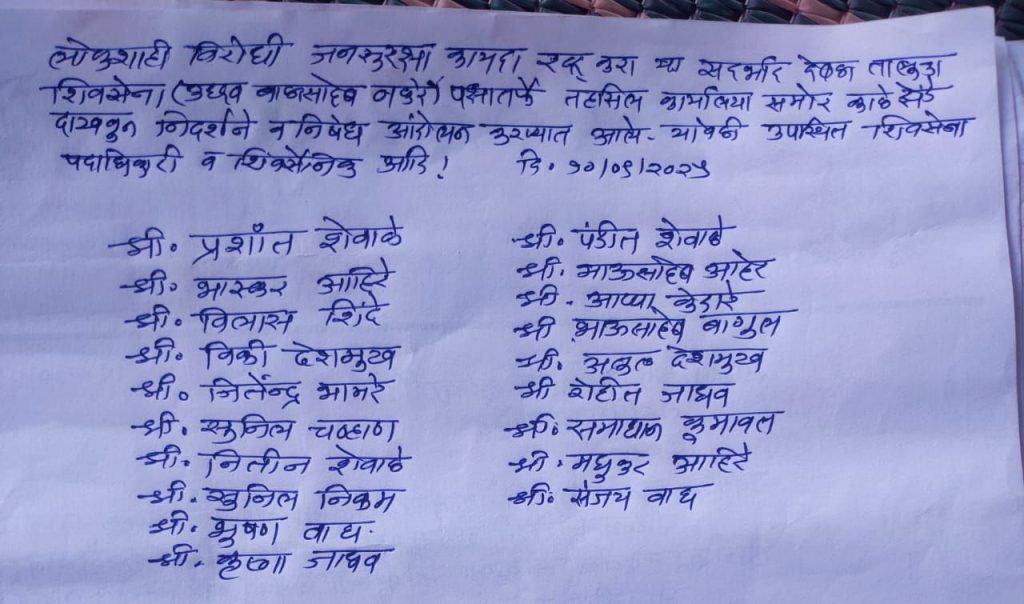 लोकशाही विरोधी जनसुरक्षा कायदा रद्द करा या संदर्भात देवळा तालुका
शिवसेना (उध्दव बाळासाहेब ठाकरे) पक्षातर्फे तहसिल कार्यालया समोर काळे झेंडे
दाखवून निदर्शने व निषेध आंदोलन करण्यात आले. यावेळी उपस्थित शिवसेना
पदाधिकारी व शिवसैनिक आदि! दि. १०/०९/२०२५
श्री. प्रशांत शेवाळे
श्री. भास्कर आहिरे
श्री. विलास शिंदे
श्री. विकी देशमुख
श्री. जितेंन्द्र भामरे
श्री. सुनिल चव्हाण
श्री. नितीन शेवाळे
श्री. सुनिल निकम
श्री. भुषण वाघ
श्री. कृष्णा जाधव
श्री. पंडीत शेवाळे
श्री. भाऊसाहेब आहेर
श्री. आप्पा केदारे
श्री भाऊसाहेब बागुल
श्री. देशमुख
श्री रोहीत जाधव
श्री. समाधान कुमावत
श्री. मधुकर आहिरे
श्री. संजय वाघ